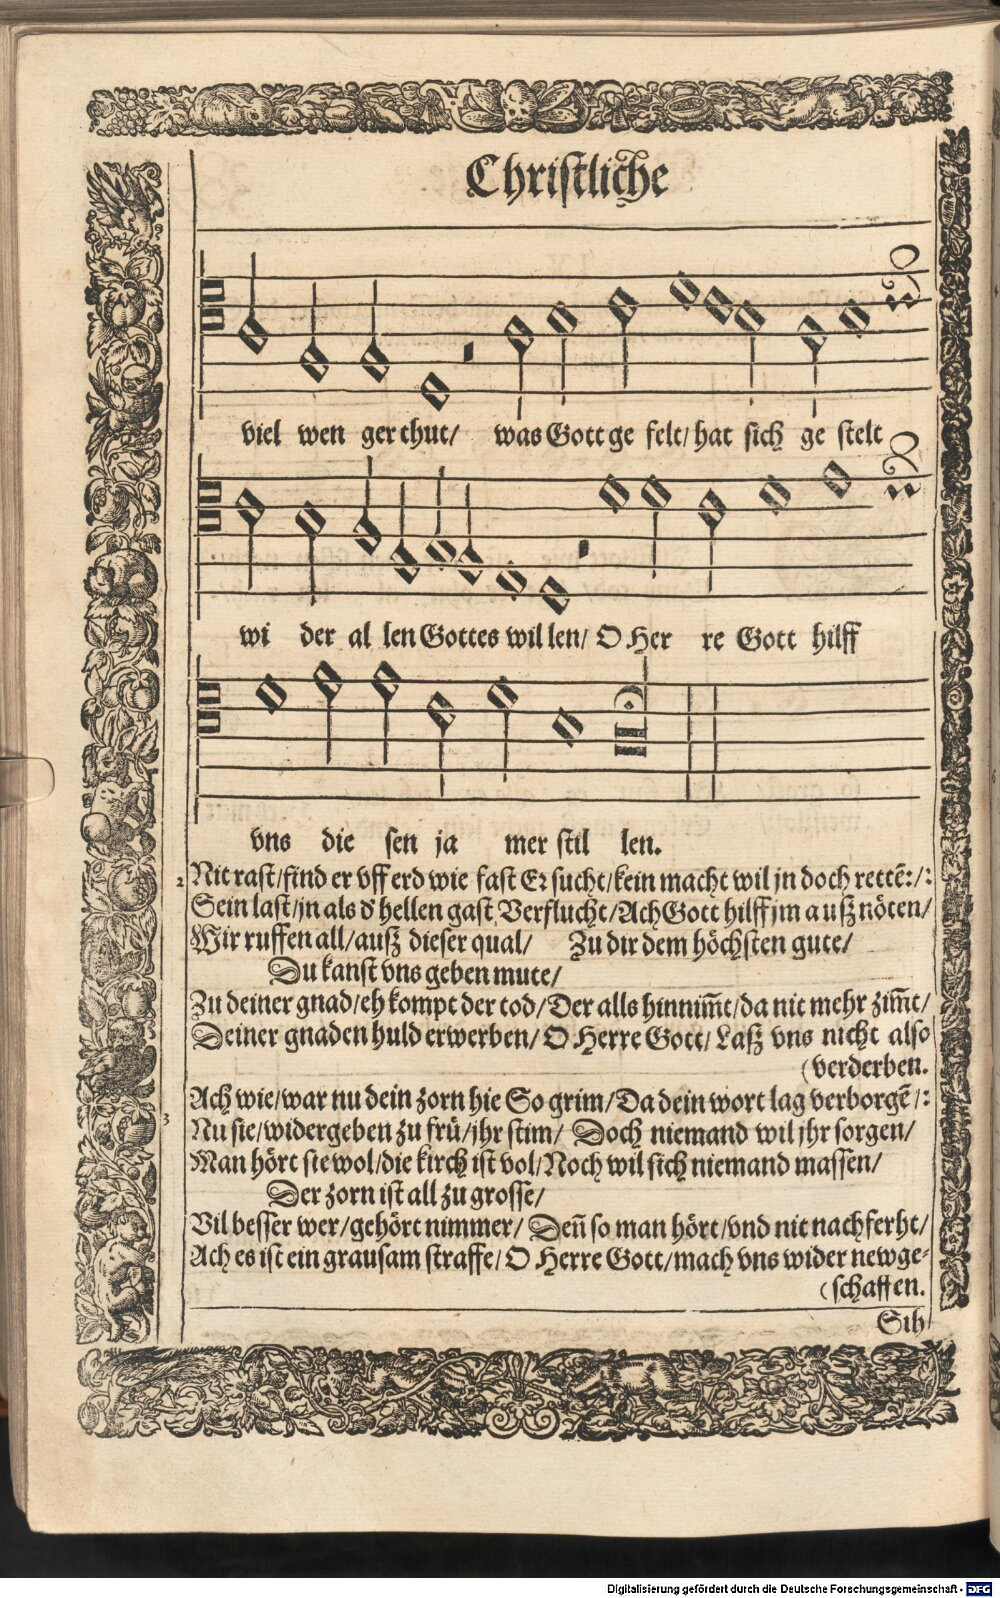 Christliche
viel wen ger thut/ was Gott ge felt/ hat sich ge stelt
wi der al len Gottes wil len/ O Her re Gott hilff
vns die sen ja mer stil len.
2 Nit rast/find er vff erd wie fast Er sucht/kein macht wil jn doch rettē:/:
Sein last/jn als d' hellen gast Verflucht/Ach Gott hilff jm außz nöten/
Wir ruffen all/außz dieser qual/ Zu dir dem höchsten gute/
Du kanst vns geben mute/
Zu deiner gnad/eh kompt der tod/Der alls hinnim̄t/da nit mehr zim̄t/
Deiner gnaden huld erwerben/ O Herre Gott/ Laßz vns nicht also
(verderben.
3 Ach wie/war nu dein zorn hie So grim/Da dein wort lag verborgē/:
Nu sie/widergeben zu frü/jhr stim/ Doch niemand wil jhr sorgen/
Man hört sie wol/die kirch ist vol/Noch wil sich niemand massen/
Der zorn ist all zu grosse/
Vil besser wer/gehört nimmer/ Deñ so man hört/vnd nit nachferht/
Ach es ist ein grausam straffe/ O Herre Gott/mach vns wider newge-
(schaffen.
Sih
Digitalisierung gefördert durch die Deutsche Forschungsgemeinschaft - DFG